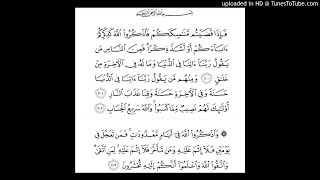 uploaded in HD @ TunesToTube.com
بِسْمِ اللَّهِ الرَّحْمَٰنِ الرَّحِيمِ
فَإِذَا قَضَيْتُم مَّنَاسِكَكُمْ فَاذْكُرُوا اللَّهَ كَذِكْرِكُمْ
ءَابَاءَكُمْ أَوْ أَشَدَّ ذِكْرًا فَمِنَ النَّاسِ مَن
يَقُولُ رَبَّنَا ءَاتِنَا فِي الدُّنْيَا وَمَا لَهُ فِي الْآخِرَةِ مِنْ
خَلَٰقٍ ٢٠٠ وَمِنْهُم مَّن يَقُولُ رَبَّنَا ءَاتِنَا فِي الدُّنْيَا
حَسَنَةً وَفِي الْآخِرَةِ حَسَنَةً وَقِنَا عَذَابَ النَّارِ ٢٠١
أُولَٰئِكَ لَهُمْ نَصِيبٌ مِّمَّا كَسَبُوا وَاللَّهُ سَرِيعُ الْحِسَابِ ٢٠٢
۞ وَاذْكُرُوا اللَّهَ فِي أَيَّامٍ مَّعْدُودَٰتٍ فَمَن تَعَجَّلَ فِي
يَوْمَيْنِ فَلَا إِثْمَ عَلَيْهِ وَمَن تَأَخَّرَ فَلَا إِثْمَ عَلَيْهِ لِمَنِ اتَّقَىٰ
وَاتَّقُوا اللَّهَ وَاعْلَمُوا أَنَّكُمْ إِلَيْهِ تُحْشَرُونَ ٢٠٣